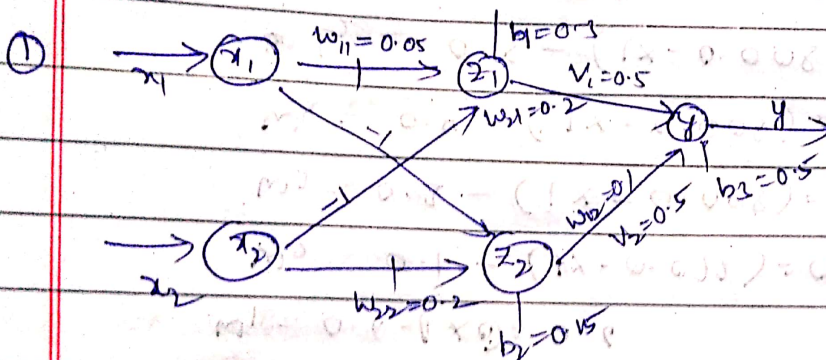 ①
x1
x1
w11 = 0.05
b1 = 0.3
z1
v1 = 0.5
w21 = 0.2
y
y
b3 = 0.5
-1
-1
w12 = 0.1
v2 = 0.5
x2
x2
w22 = 0.2
z2
b2 = 0.15